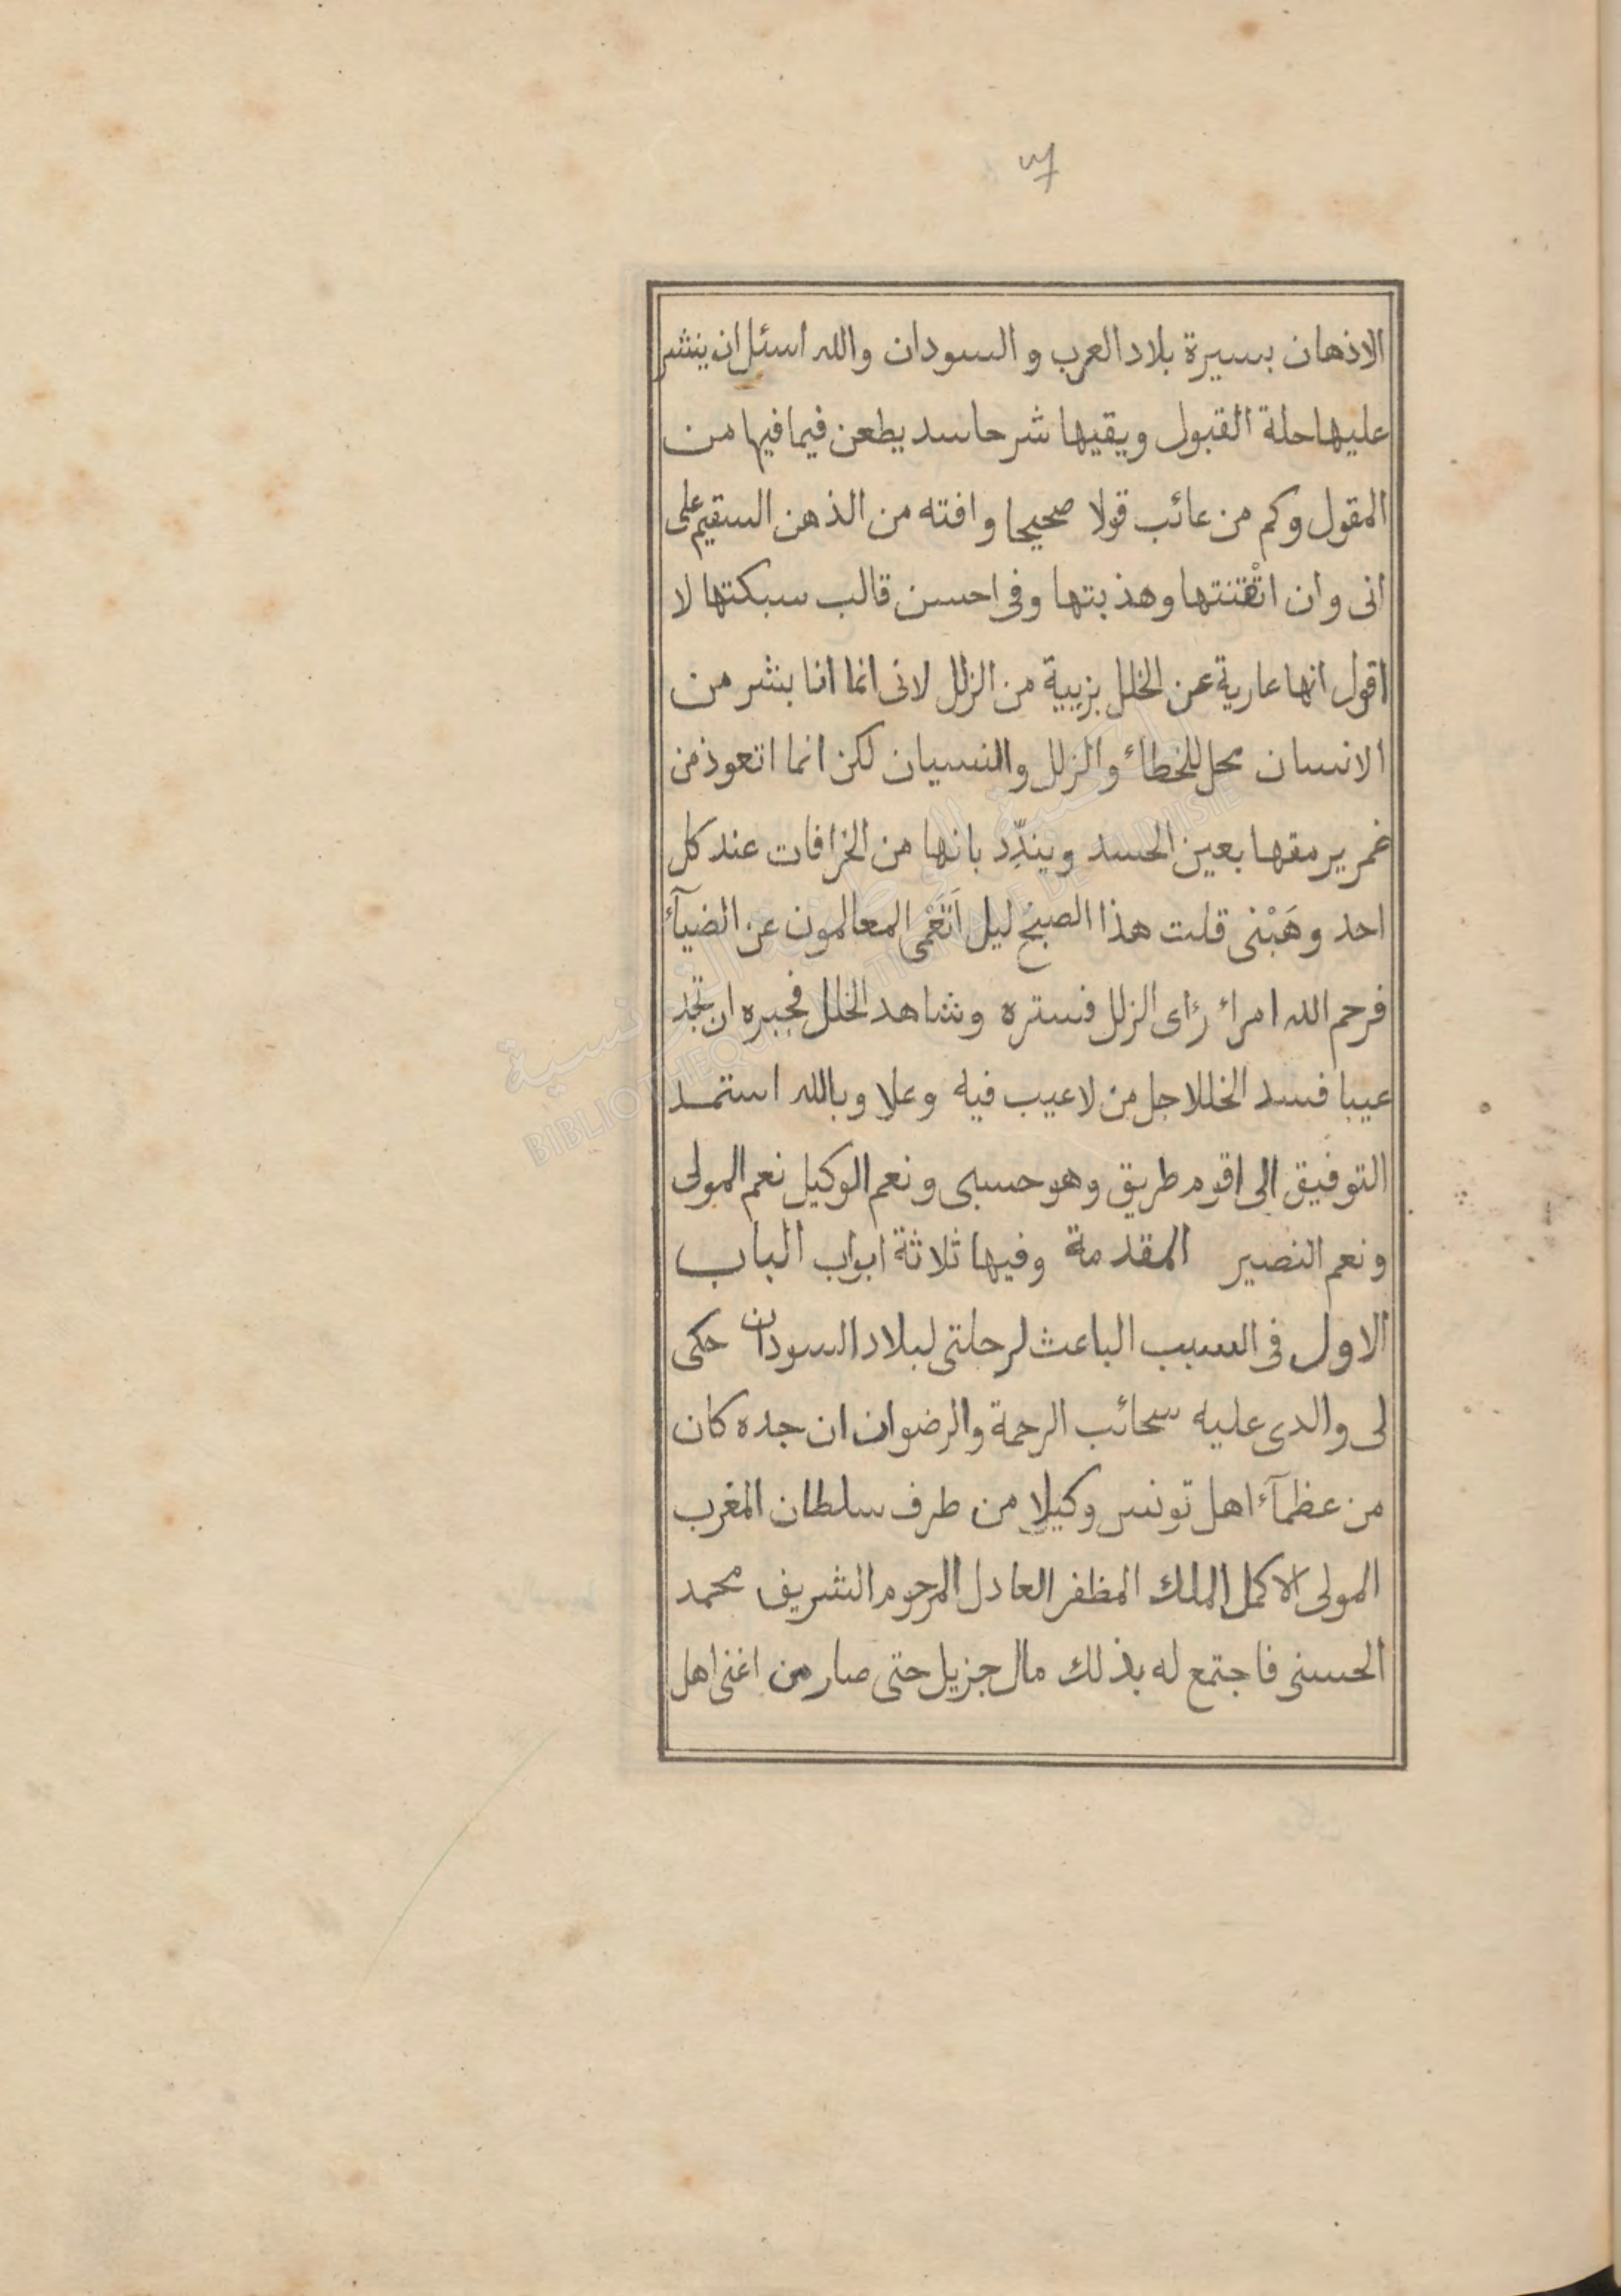 الاذهان بسيرة بلاد العرب و السودان والله اسئل ان ينشر
عليها حلة القبول ويقيها شر حاسد يطعن فيما فيها من
المقول وكم من عائب قولا صحيحا وافته من الذهن السقيم على
انى وان اتْقنتها وهذبتها وفى احسن قالب سبكتها لا
اقول انها عارية عن الخلل بزيية من الزلل لانى انما انا بشر من
الانسان محل للخطاء والزلل والنسيان لكن انما اتعوذ من
غمر يرمقها بعين الحسد ويندِّد بانها من الخرافات عند كل
احد وهَبْنى قلت هذا الصبح ليل اَتَعْمى المعالمون عن الضيآء
فرحم الله امراء رءاى الزلل فستره وشاهد الخلل فجبره ان تجد
عيبا فسد الخللا جل من لا عيب فيه وعلا وبالله استمد
التوفيق الى اقوم طريق وهو حسبى ونعم الوكيل نعم المولى
ونعم النصير المقدمة وفيها ثلاثة ابواب الباب
الاول فى السبب الباعث لرحلتى لبلاد السودان حكى
لى والدى عليه سحائب الرحمة والرضوان ان جده كان
من عظمآء اهل تونس وكيلا من طرف سلطان المغرب
المولى الاكمل الملك المظفر العادل المرحوم الشريف محمد
الحسنى فاجتمع له بذلك مال جزيل حتى صار من اغنى اهل
BIBLIOTHEQUE NATIONALE DE TUNISIE